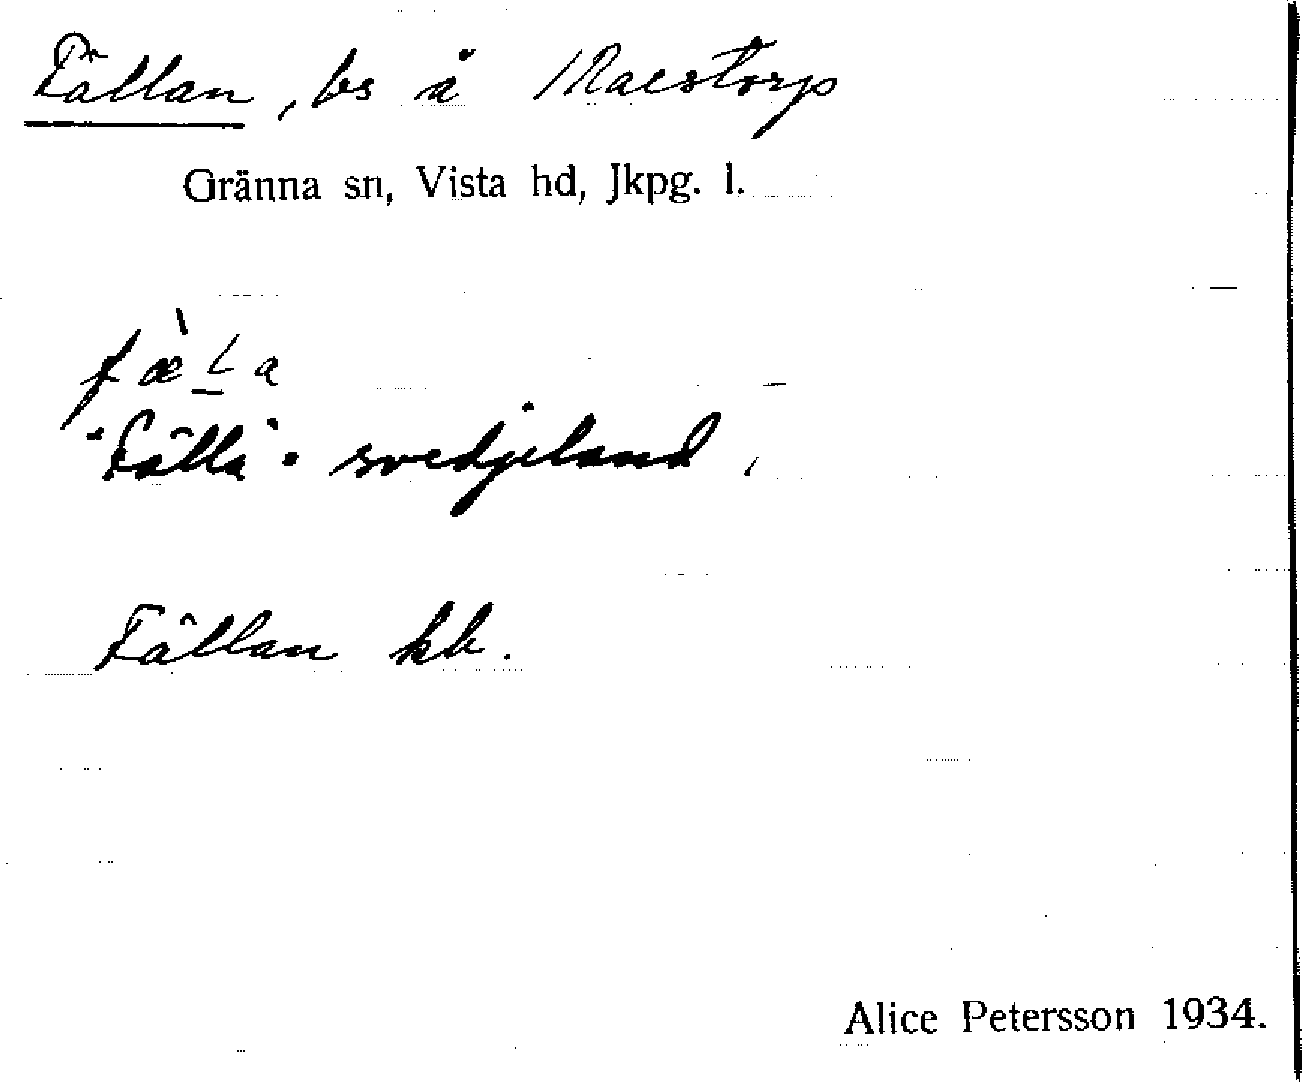 Fällan, bs å Maestorp
Gränna sn, Vista hd, Jkpg. l.
fæ̀L̲a
"Fälla" = svedjeland.
Fällan kb.
Alice Petersson 1934.